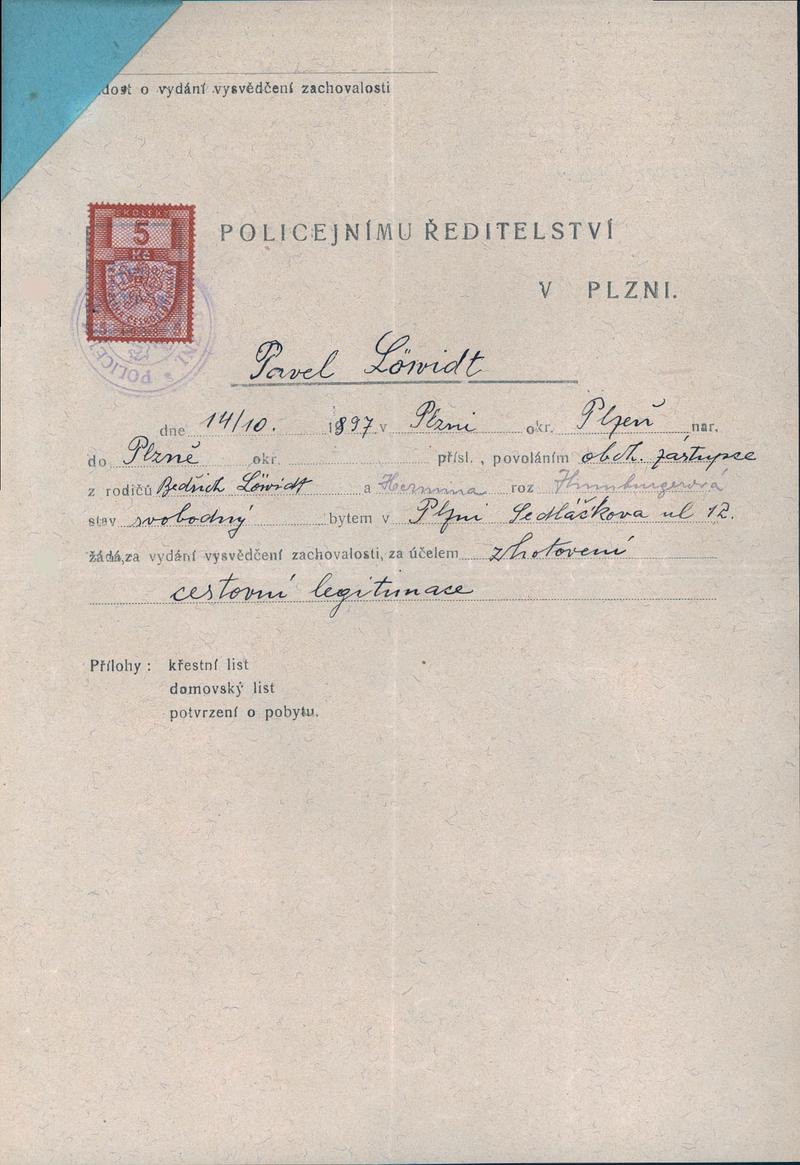 dost o vydání vysvědčení zachovalosti
KOLEK
5
Kč
POLICEJNÍMU ŘEDITELSTVÍ
V PLZNI.
Pavel Löwidt
dne 14/10. 1897 v Plzni okr. Plzeň nar.
do Plzně okr. přísl., povoláním obch. zástupce
z rodičů Bedřich Löwidt a Hermina roz
stav svobodný bytem v Plzni Sedláčkova ul 12.
žádá, za vydání vysvědčení zachovalosti, za účelem zhotovení
cestovní legitimace
Přílohy : křestní list
domovský list
potvrzení o pobytu.